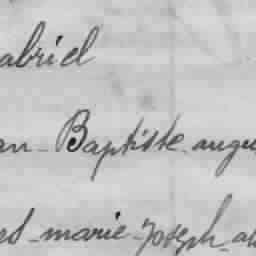 abriel
an-Baptiste augu
ed-marie-joseph-au